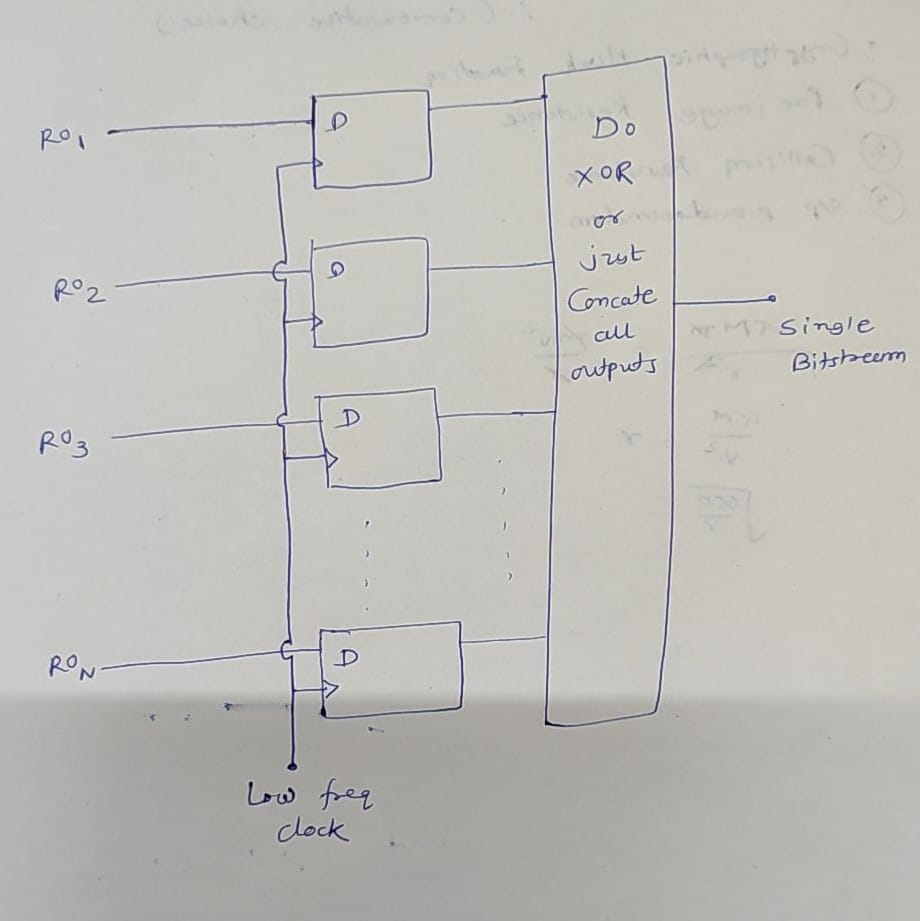 RO1
D
RO2
D
RO3
D
RON
D
Low freq
clock
Do
XOR
or
just
Concate
all
outputs
Single
Bitstream